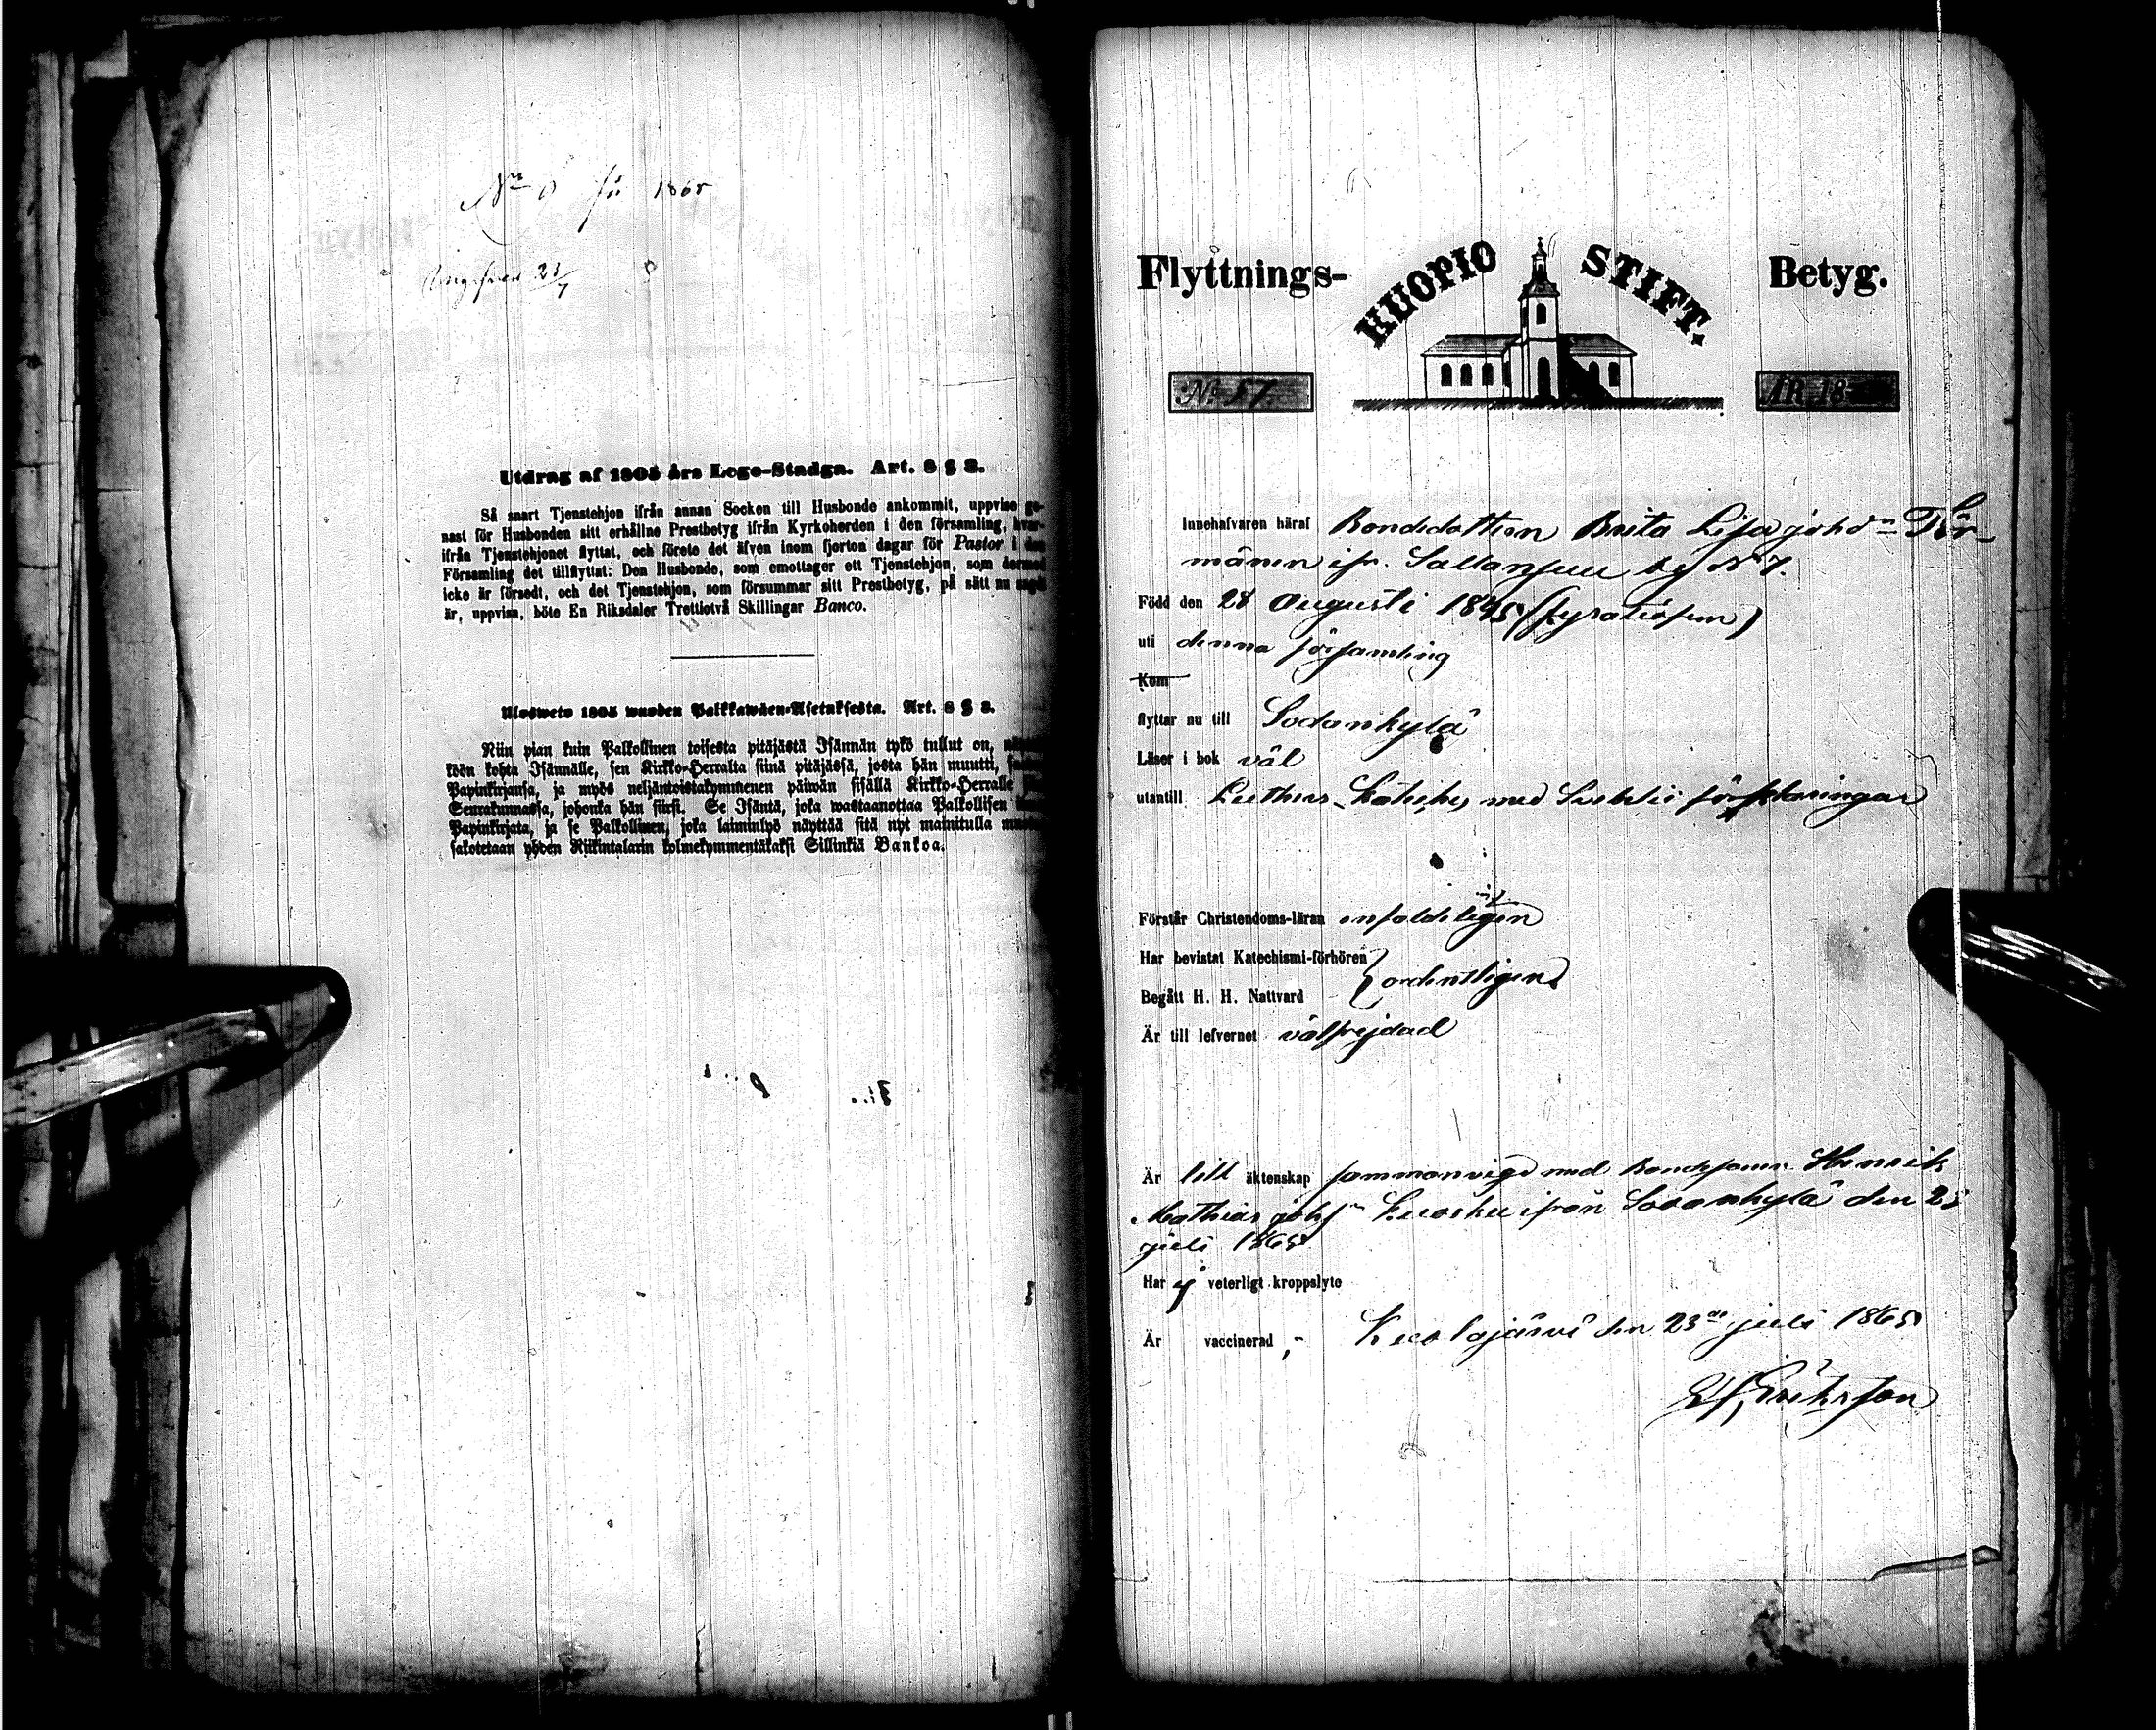 1865
Utdrag af 1805 års Lego-Stadga. Art. 8 § 2.
Så snart Tjenstehjon ifrån annan Socken till Husbonde ankommit, uppvise ge-
nast för Husbonden sitt erhållne Prestbetyg ifrån Kyrkoherden i den församling, hvar-
ifrån Tjenstehjonet flyttat, och förete det äfven inom fjorton dagar för Pastor i den
Församling det tillflyttat: Den Husbonde, som emottager ett Tjenstehjon, som dermed
icke är försedt, och det Tjenstehjon, som försummar sitt Prestbetyg, på sätt nu sagdt
är, uppvisa, böte En Riksdaler Trettiotvå Skillingar Banco.
Uloswето 1805 wuoden Palkkawäen-Asetuksesta. Art. 8 § 2.
Niin pian kuin Palkollinen toisesta pitäjästä Isännän tykö tullut on,
köön kohta Isännälle, sen Kirkko-Herralta siinä pitäjässä, josta hän muutti,
Papinkirjansa, ja myös neljäntoistakymmenen päiwän sisällä Kirkko-Herralle
Seurakunnassa, johonka hän siirsi. Se Isäntä, joka wastaanottaa Palkollisen
Papinkirjata, ja se Palkollinen, joka laiminlyö näyttää sitä nyt mainitulla
sakotetaan yhden Riikintalarin kolmekymmentäkaksi Sillinkiä Bankoa.
Flyttnings- KUOPIO STIFT. Betyg.
No 57. ÅR 18
Innehafvaren häraf Bondedottren Brita Lisa Johdn Tör-
mänen ifr. Sallansuu by No 7.
Född den 28 Augusti 1845 (fyratiofem)
uti denna församling
Kom
flyttar nu till Sodankylä
Läser i bok väl
utantill Luthers Kateches med Svebelii förklaringar
Förstår Christendoms-läran enfaldeligen
Har bevistat Katechismi-förhören } ordentligen
Begått H. H. Nattvard
Är till lefvernet välfrejdad
Är till äktenskap sammanvigd med Bondesonen Henrik
Mathias Johsn Kuosku ifrån Sodankylä den 23
juli 1865
Har ej veterligt kroppslyte
Är vaccinerad, - Kuolajärvi den 23de juli 1865